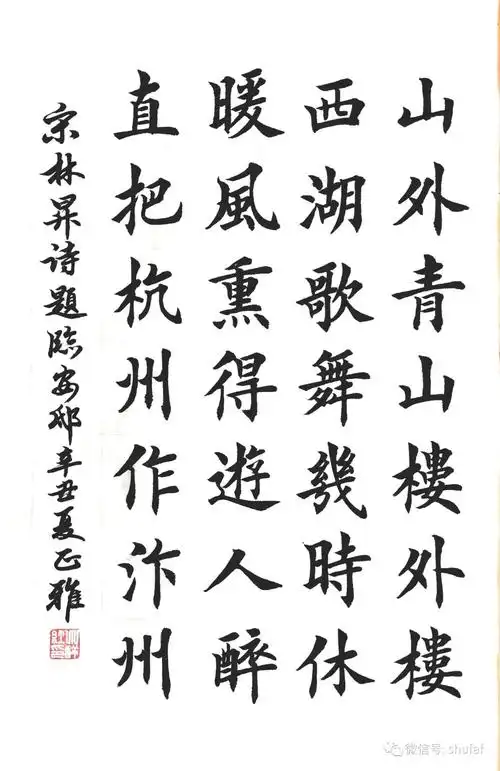 山外青山樓外樓
西湖歌舞幾時休
暖風熏得遊人醉
直把杭州作汴州
宋林昇诗題臨安邸辛丑夏正雅
微信号: shufaf